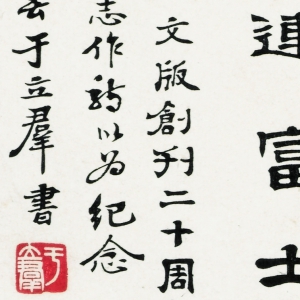 連富士
文版創刊二十周
志作詩以為紀念
于立羣書
于立羣